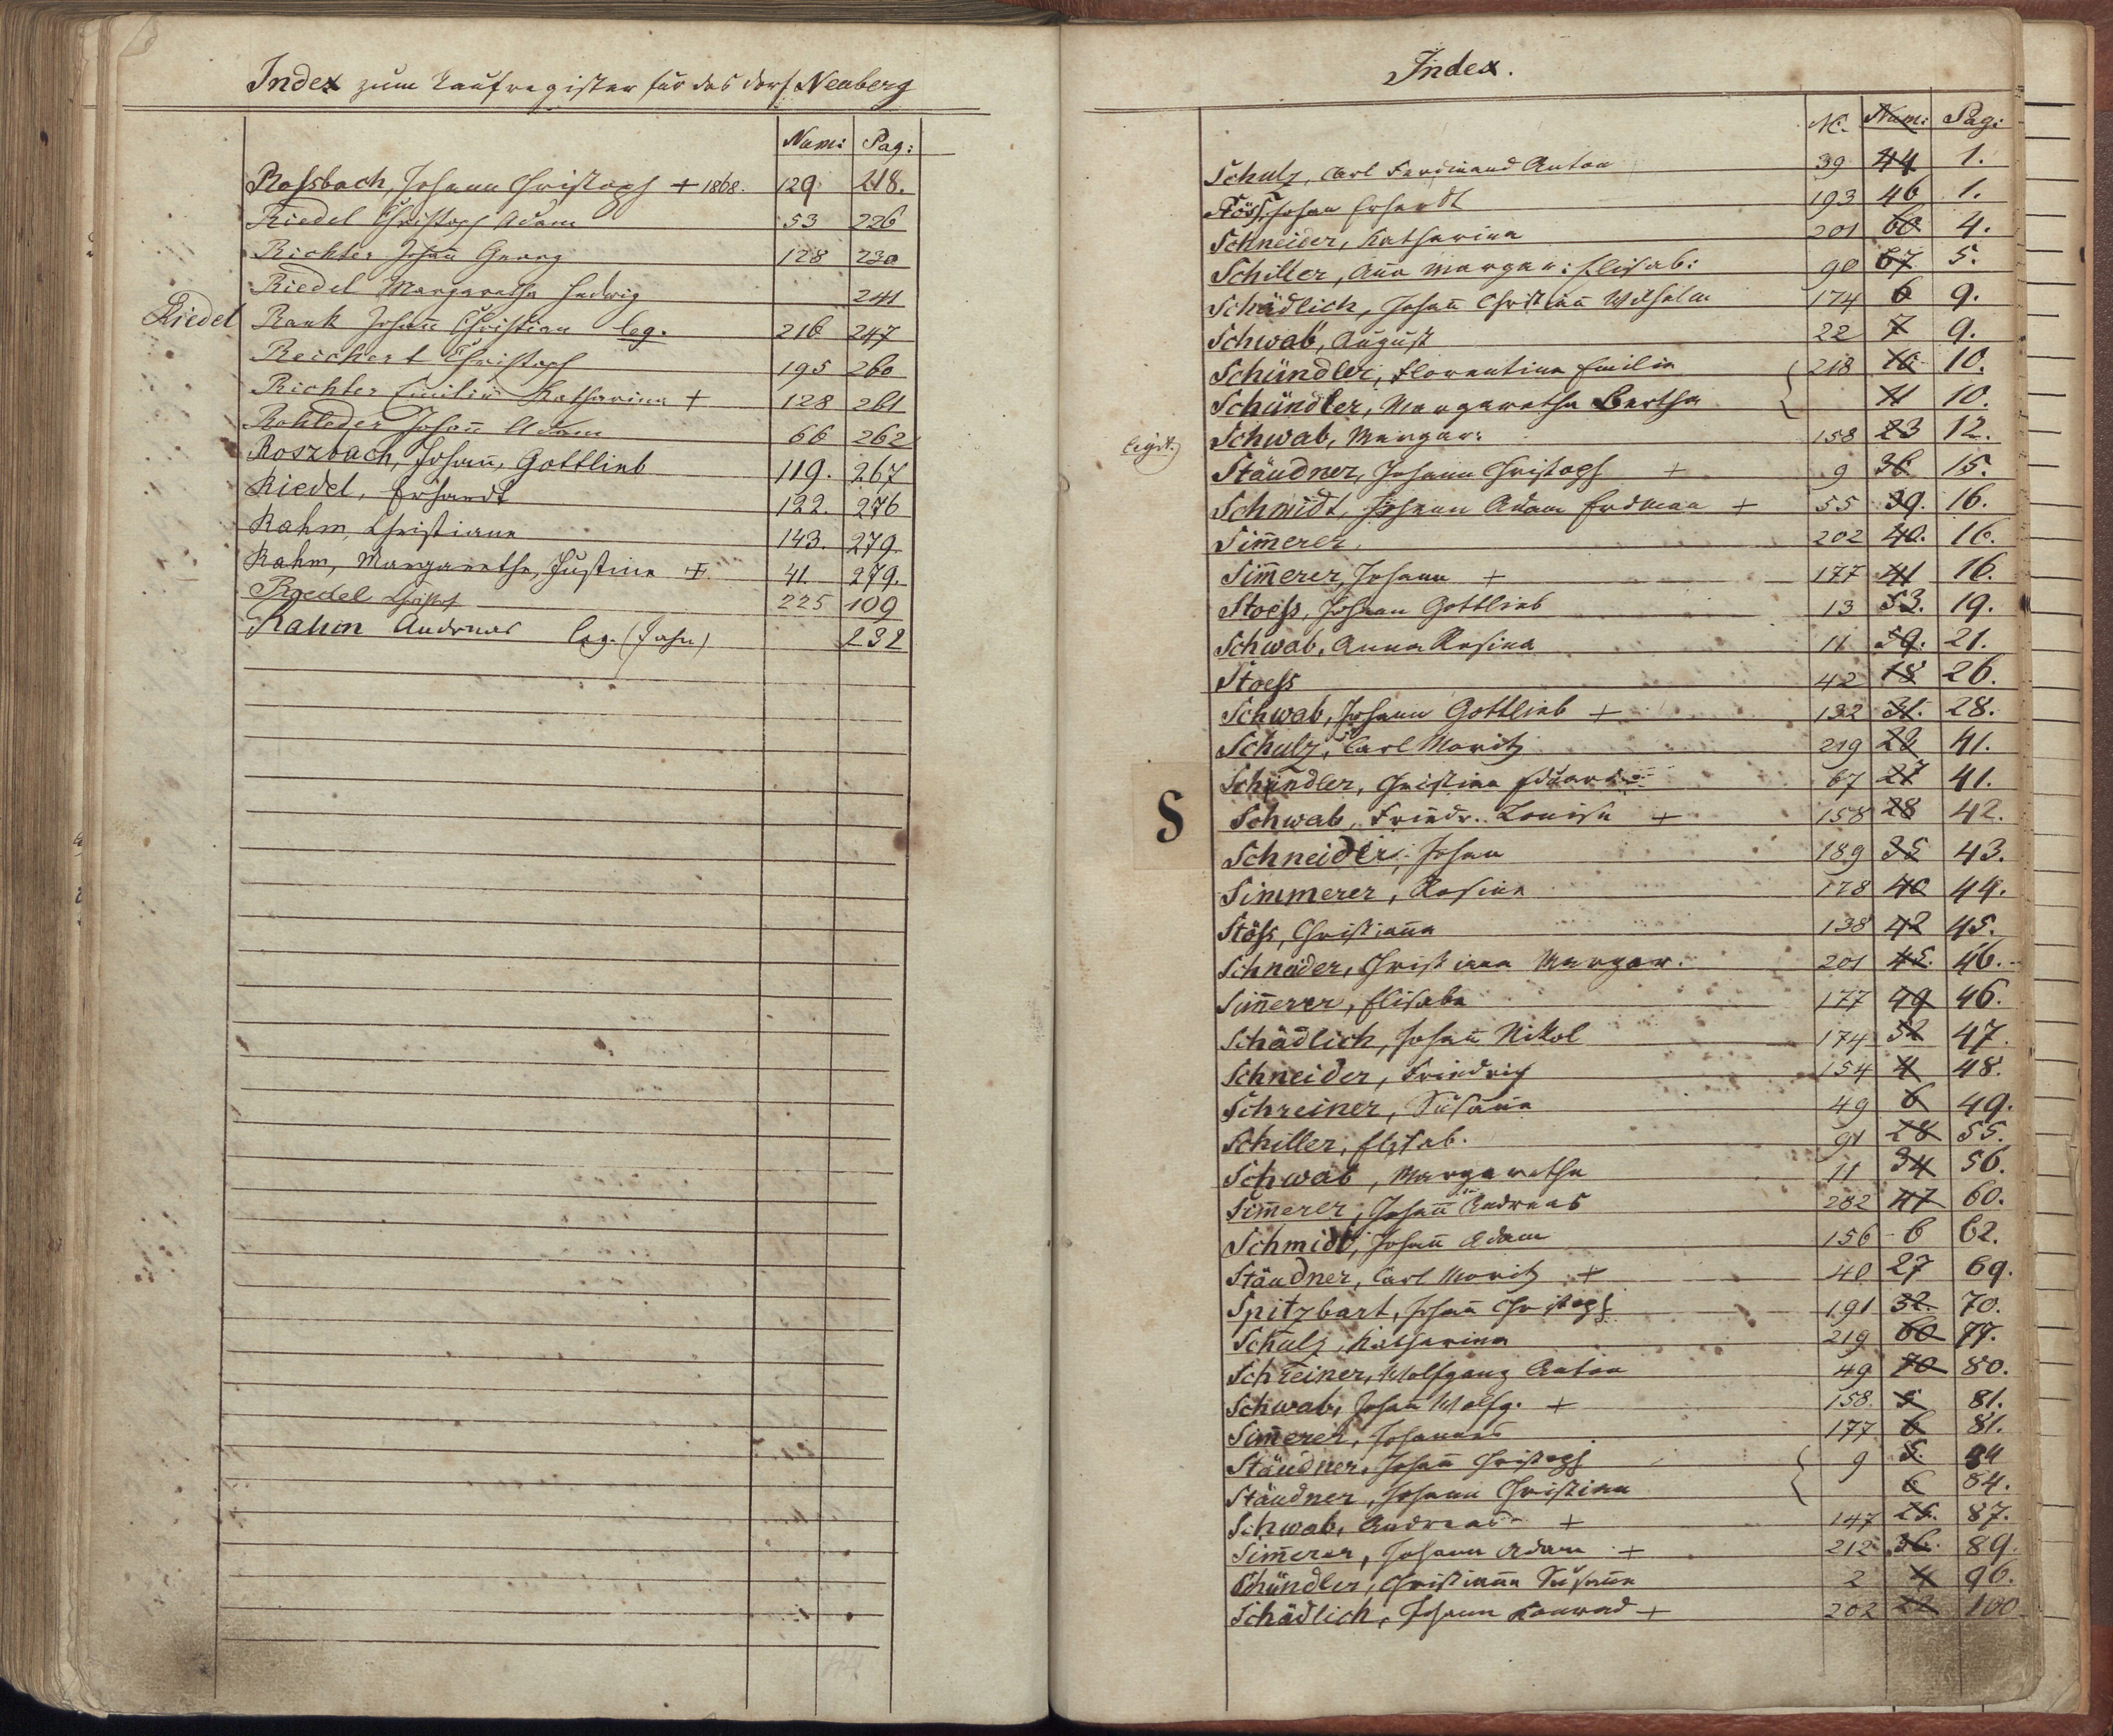 Index zum Taufregister für das Dorf Neuberg
Num: Pag:
Rossbach, Johann Christoph + 1868. 129 218.
Riedel Christoph Adam 53 226
Richter Johañ Georg 128 230
Riedel Margaretha Hedwig 241
Riedel Rank Johañ Christian leg. 216 247
Reichert Christoph 195 260
Richter Emilie Katharina + 128 261
Rohleder Johañ Adam 66 262
Roszbach, Johañ, Gottlieb 119. 267
Riedel, Erhardt 122. 276
Rahm, Christiana 143. 279
Rahm, Margaretha, Justina + 41. 279.
Riedel Christof 225 109
Rahm Andreas leg. (Jahn) 232
Index.
N: Num: Pag:
Schulz, Carl Ferdinand Anton 39 44 1.
Stöss, Johan Erhardt 193 46 1.
Schneider, Katharina 201 60 4.
Schiller, Aña Margar: Elisab: 90 67 5.
Schädlich, Johañ Christian Wilhelm 174 6 9.
Schwab, August 22 7 9.
Schündler, Florentina Emilia 218 10 10.
Schündler, Margaretha Bertha 11 10.
legit.) Schwab, Margar: 158 23 12.
Stäudner, Johann Christoph + 9 36 15.
Schmidt, Johann Adam Erdman + 55 39. 16.
Sim̃erer, 202 40. 16.
Sim̃erer, Johann + 177 41 16.
Stoess, Johann Gottlieb 13 53. 19.
Schwab, Anna Rosina 11 59. 21.
Stoess 42 18 26.
Schwab, Johann Gottlieb + 132 31. 28.
Schulz, Carl Moritz 219 23 41.
Schündler, Christian Eduard 67 27 41.
S
Schwab, Friedr. Louise + 158 28 42.
Schneider, Johan 189 35 43.
Simmerer, Rosina 178 40 44.
Stöss, Christiaña 138 42 45.
Schneider, Christiana Margar. 201 45. 46.
Sim̃erer, Elisabe 177 49 46.
Schädlich, Johañ Nikol 174 52 47.
Schneider, Friedrich 154 4 48.
Schreiner, Susaña 49 6 49.
Schiller, Elisab. 91 28 55.
Schwab, Margaretha 11 34 56.
Sim̃erer, Johañ Andreas 202 47 60.
Schmidt, Johañ Adam 156 6 62.
Stäudner, Carl Moritz + 40 27 69.
Spitzbart, Johañ Christoph 191 32. 70.
Schulz, Katharina 219 60 77.
Schreiner, Wolfgang Anton 49 70 80.
Schwab, Johañ Wolfg. + 158. 5 81.
Sim̃erer, Johannes 177 6 81.
Stäudner, Johañ Christoph 9 5. 84
Stäudner, Johann Christian 6 84.
Schwab, Andreas + 147 25. 87.
Sim̃erer, Johann Adam + 212 36. 89.
Schündler, Christiaña Susaña 2 4 96.
Schädlich, Johann Konrad + 202 22 100